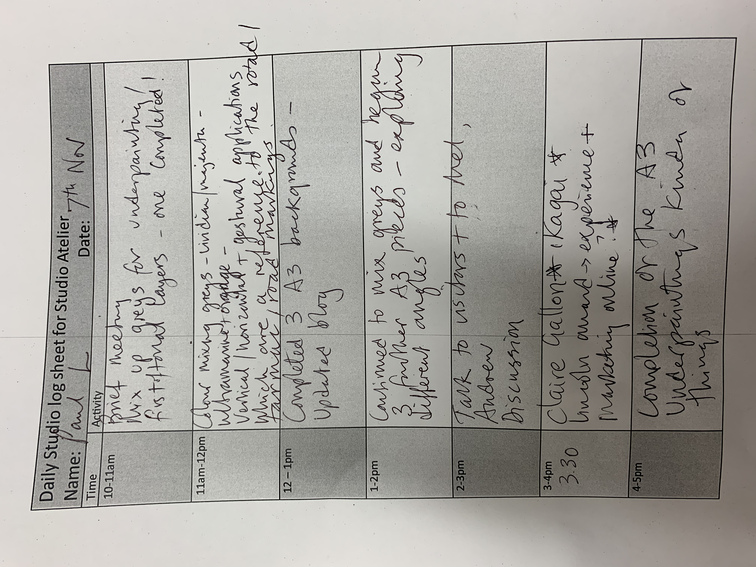 Daily Studio log sheet for Studio Atelier
Name: Paul L Date: 7th Nov
Time Activity
10-11am Brief meeting
Mix up greys for underpainting/
first/tonal layers - one completed!
11am-12pm Colour mixing greys - viridian/magenta -
ultramarine + orange -
Vertical/horizontal + gestural applications
which are a reference to the road/
tarmac/road markings
12 – 1pm Completed 3 A3 backgrounds -
Updated blog
1-2pm Continued to mix greys and begin
3 further A3 pieces - exploring
different angles
2-3pm Talk to visitors + to Mel,
Andrew
Discussion
3-4pm Claire Gallon * ikagai *
3.30 Lincoln award → experience +
marketing online
4-5pm Completion of the A3
Underpaintings kinda of
things